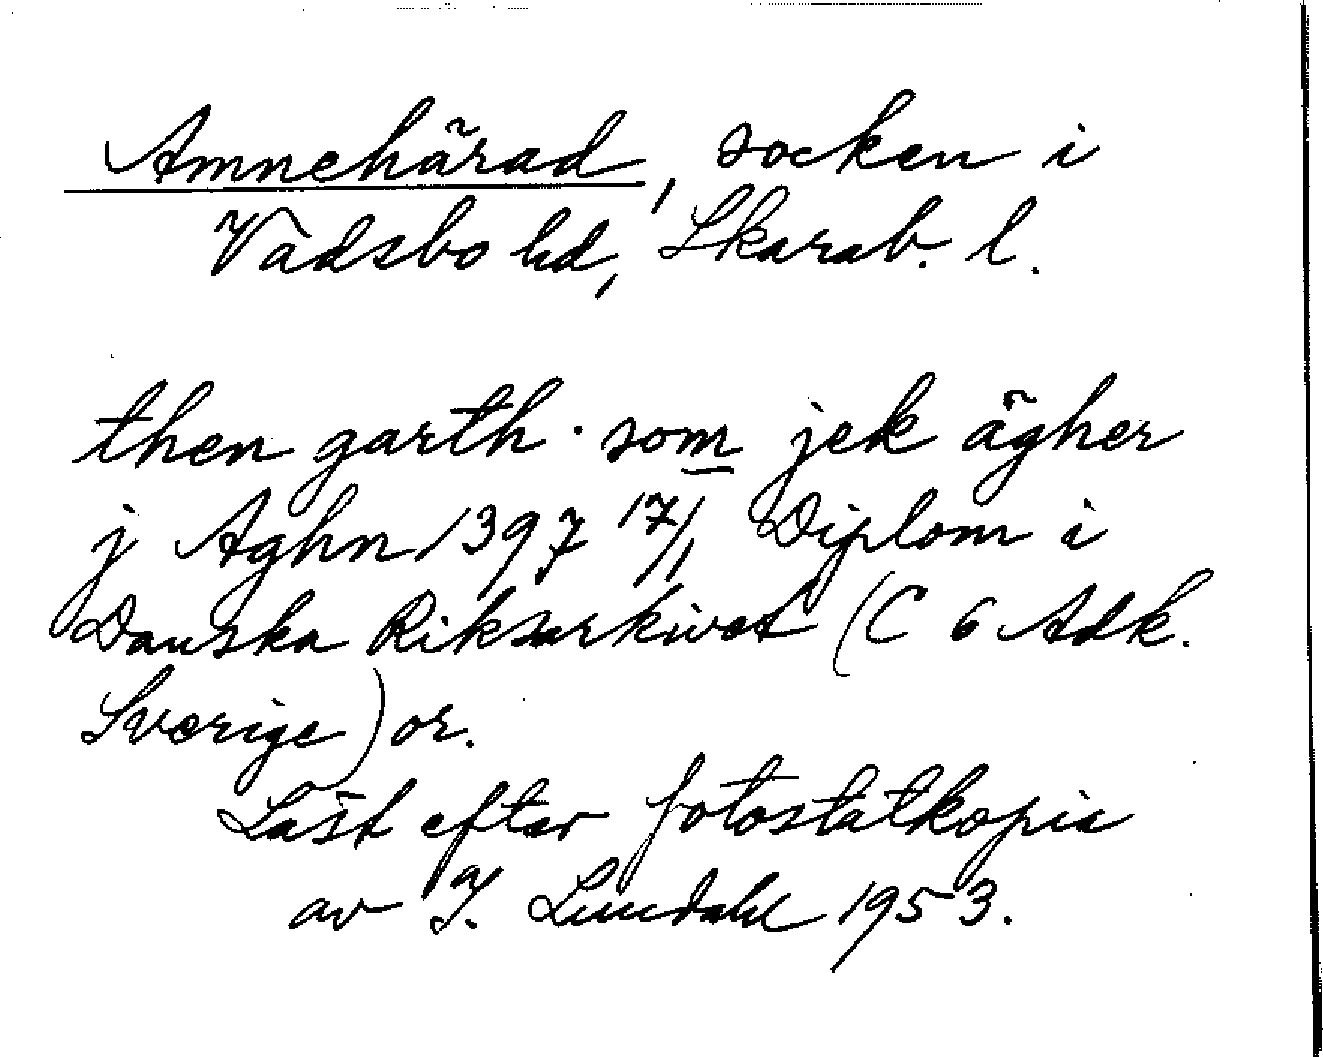 Amnehärad, socken i
Vadsbo hd, Skarab. l.
then garth · som jek ägher
j Aghn 1397 17/1 Diplom i
Danska Riksarkivet (C 6 Adk.
Sverige) or.
Läst efter fotostatkopia
av I. Lundahl 1953.